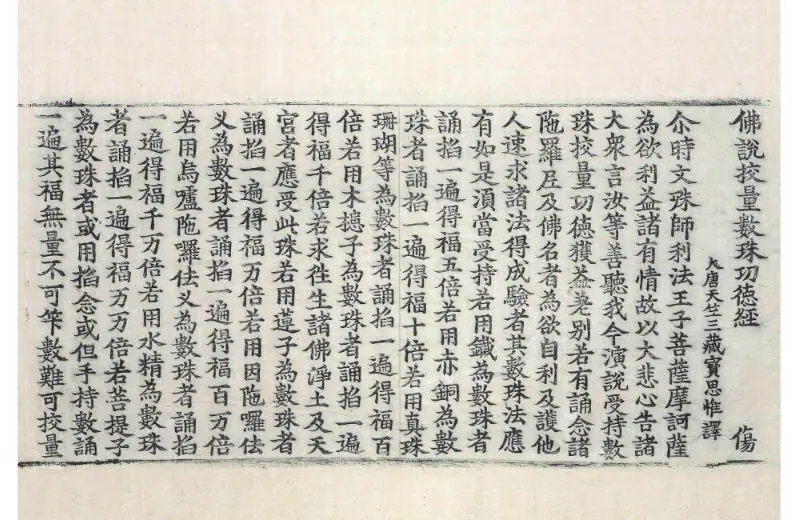 佛說挍量數珠功德經 傷
大唐天竺三藏寶思惟譯
尒時文殊師利法王子菩薩摩訶薩
為欲利益諸有情故以大悲心告諸
大衆言汝等善聽我今演說受持數
珠挍量功德獲益差別若有誦念諸
陁羅尼及佛名者為欲自利及護他
人速求諸法得成驗者其數珠法應
有如是湏當受持若用鐵為數珠者
誦掐一遍得福五倍若用赤銅為數
珠者誦掐一遍得福十倍若用真珠
珊瑚等為數珠者誦掐一遍得福百
倍若用木槵子為數珠者誦掐一遍
得福千倍若求往生諸佛淨土及天
宮者應受此珠若用蓮子為數珠者
誦掐一遍得福万倍若用因陁囉佉
叉為數珠者誦掐一遍得福百万倍
若用烏嚧陁囉佉叉為數珠者誦掐
一遍得福千万倍若用水精為數珠
者誦掐一遍得福万万倍若菩提子
為數珠者或用掐念或但手持數誦
一遍其福無量不可筭數難可挍量